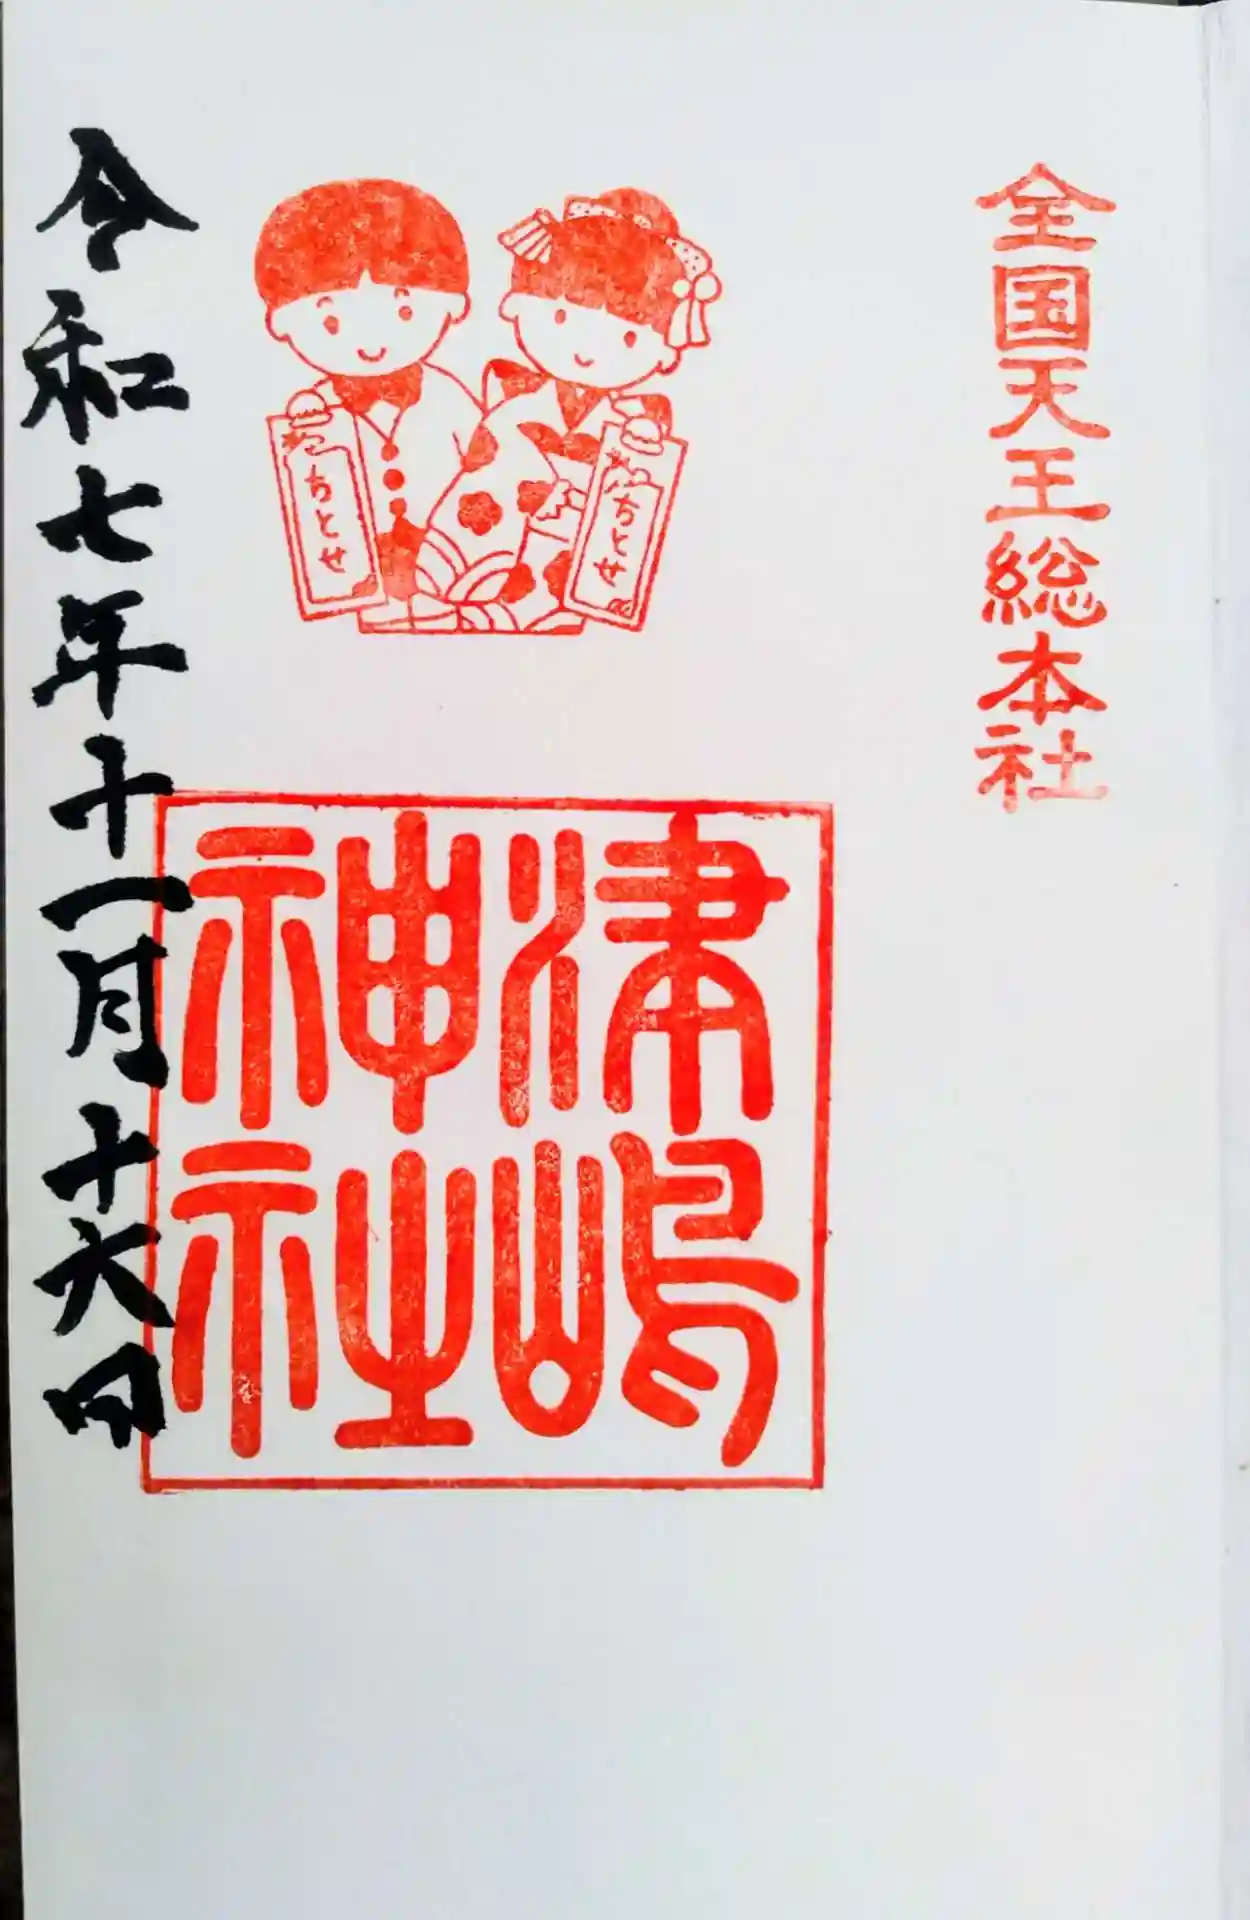 全国天王総本社
津嶋
神社
ちとせ
ちとせ
令和七年十一月十六日